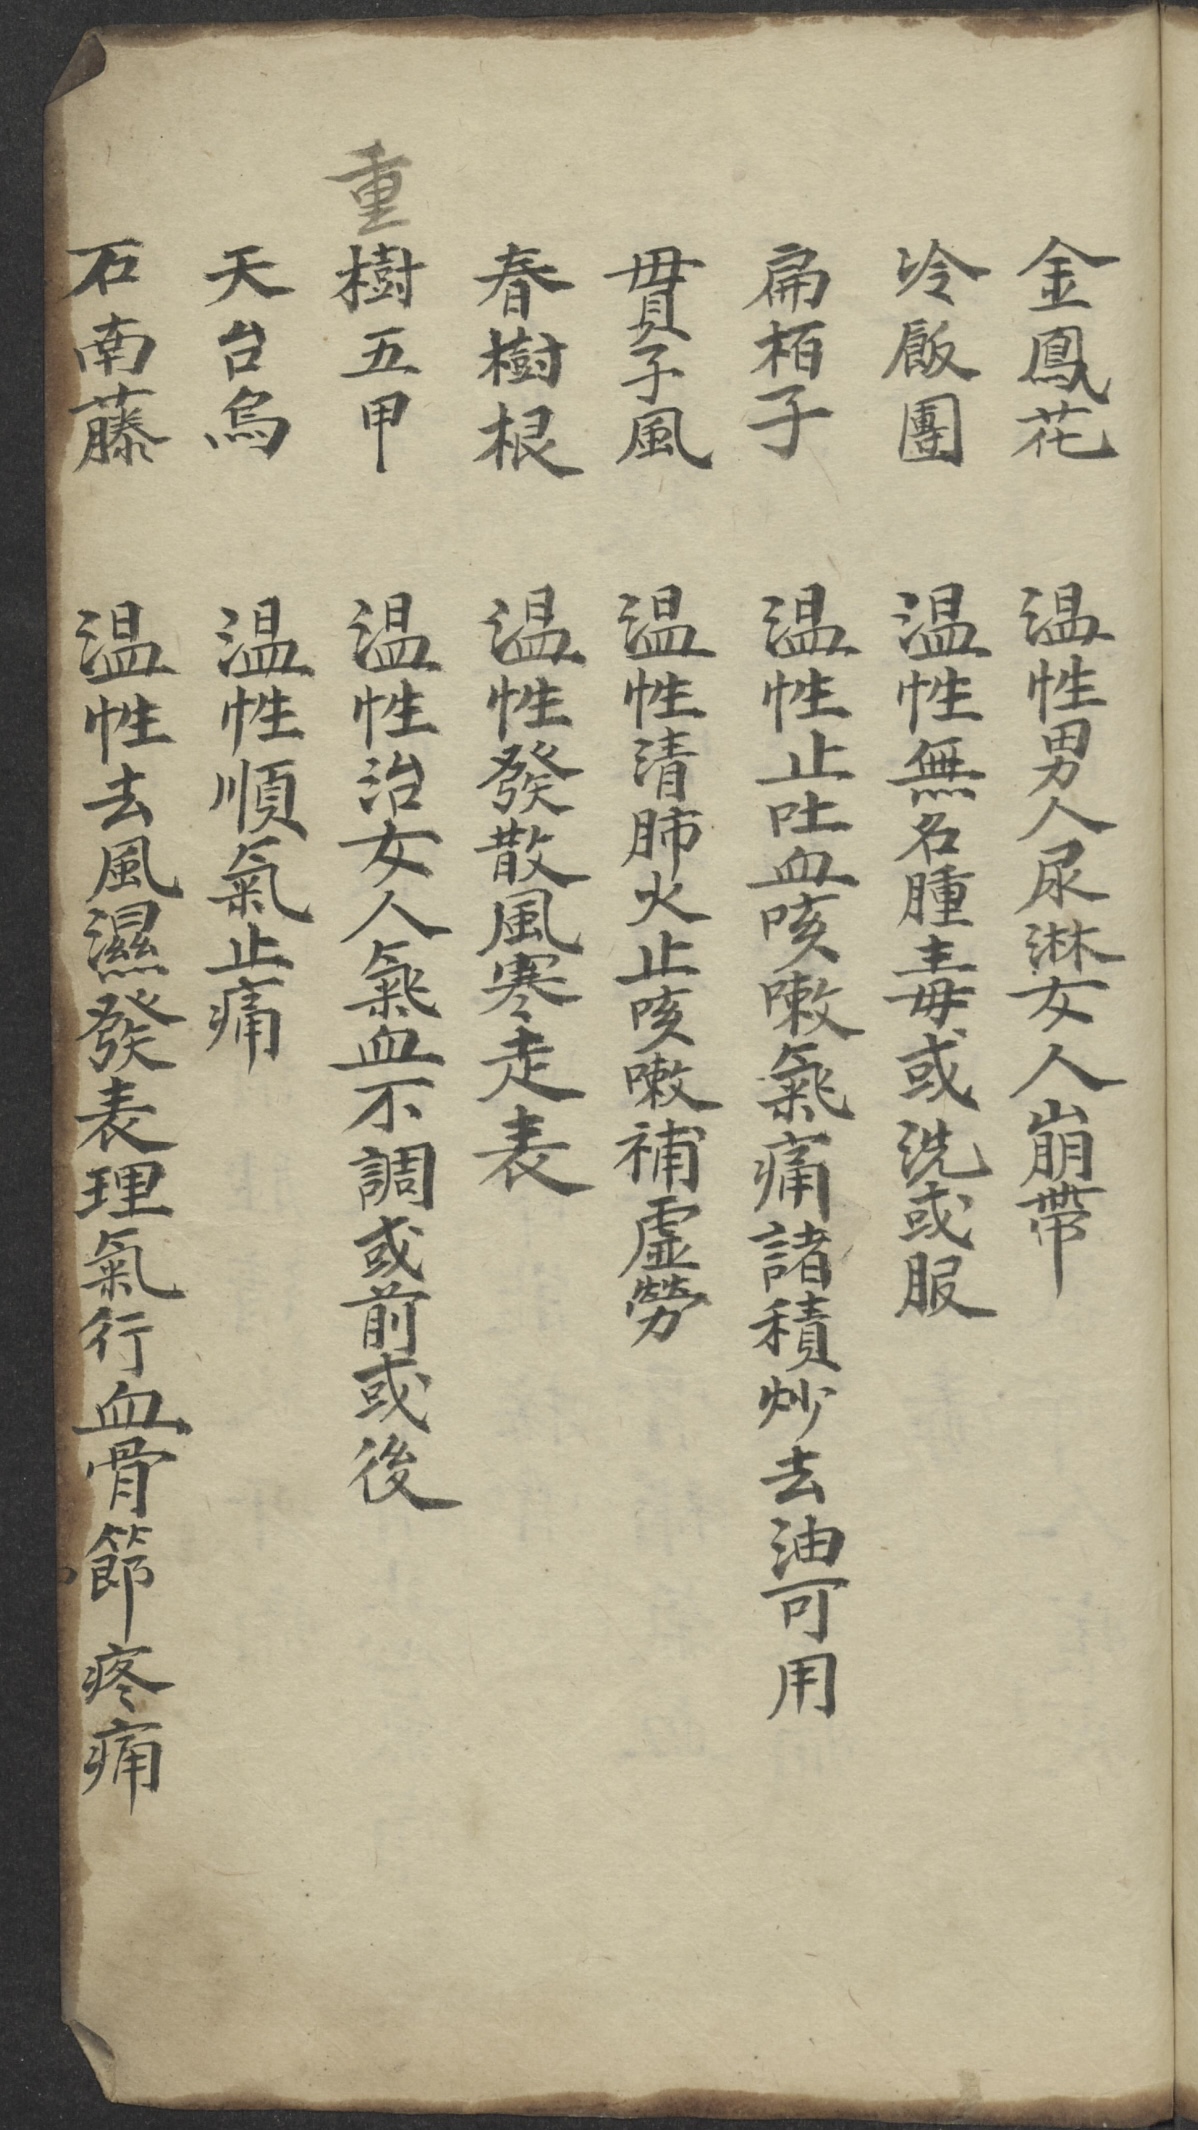 金鳳花 温性男人尿淋女人崩帶
冷飯團 温性無名腫毒或洗或服
扁栢子 温性止吐血咳嗽氣痛諸積炒去油可用
貫子風 温性清肺火止咳嗽補虛勞
春樹根 温性發散風寒走表
重樹五甲 温性治女人氣血不調或前或後
天台烏 温性順氣止痛
石南藤 温性去風濕發表理氣行血骨節疼痛